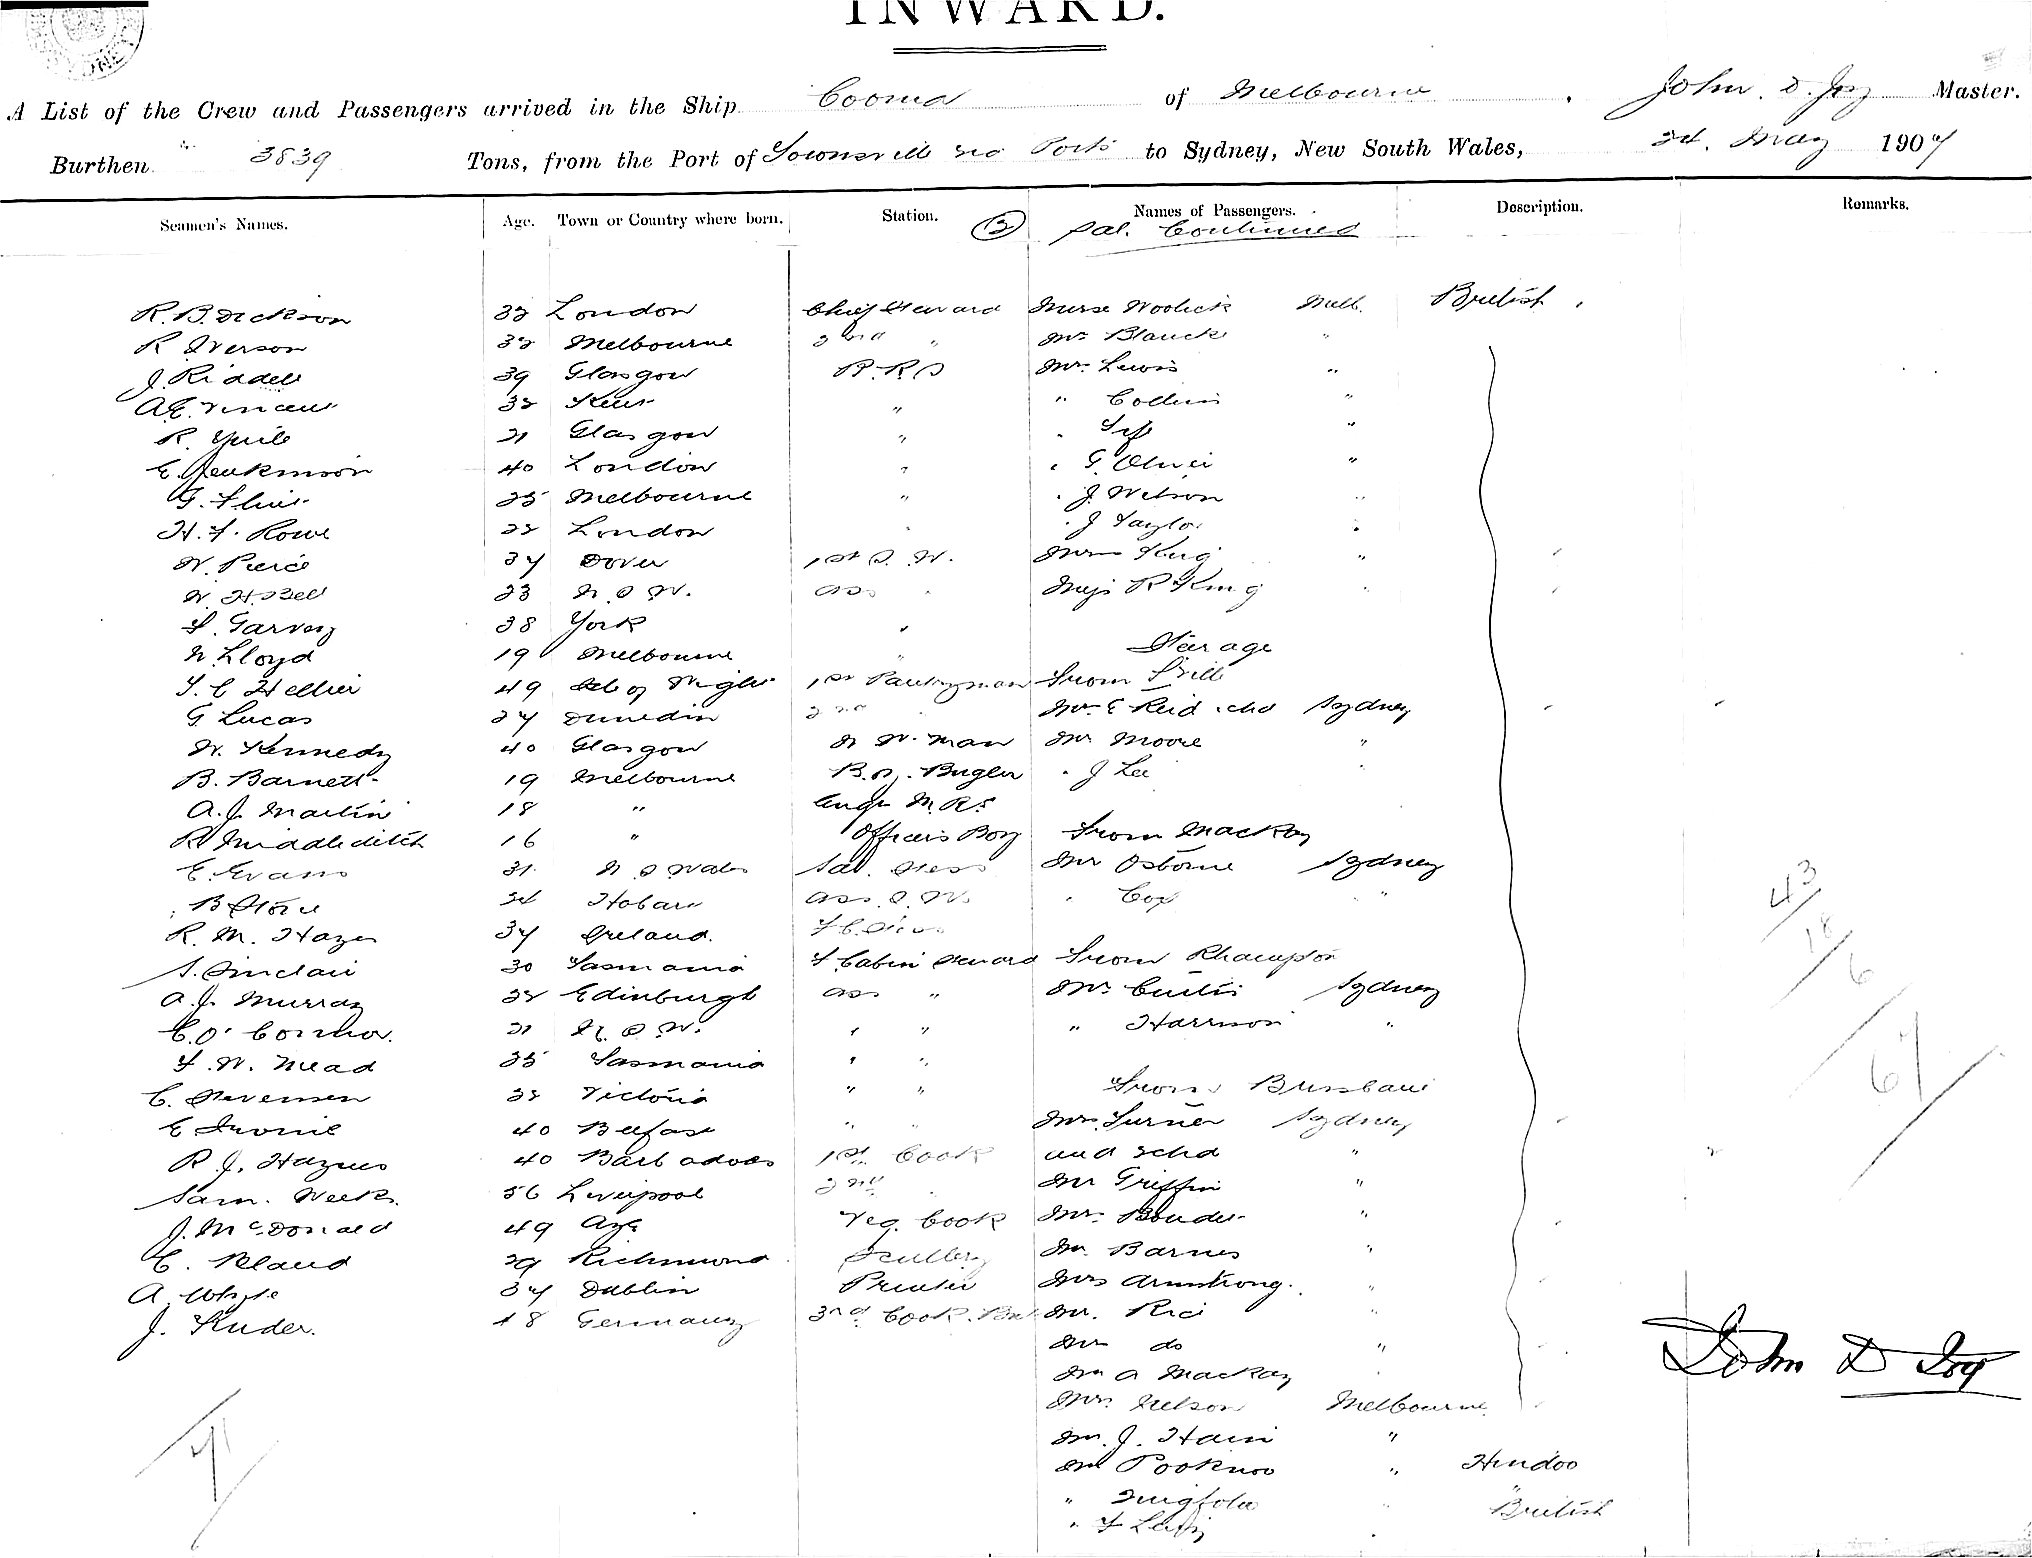 INWARD.
A List of the Crew and Passengers arrived in the Ship Cooma of Melbourne, John. D. Joy Master.
Burthen 3839 Tons, from the Port of Townsville via Ports to Sydney, New South Wales, 24. May 1907
Seamen's Names. Age. Town or Country where born. Station. Names of Passengers. Description. Remarks.
(2) Sal. Continued
R. B. Dickson 33 London Chief Steward Nurse Woolick Melb. British
R Iverson 32 Melbourne 2nd " Mr Blanck "
J. Riddell 39 Glasgow B.R.S Mr. Lewis "
A.E. Vincent 32 Kent " " Collins "
R. Yuile 21 Glasgow " "
E. Jenkinson 40 London " " G. Oliver "
G. 25 Melbourne " " J. Wilson "
H. F. Rowe 22 London " " J Taylor "
W. Peirce 37 Dover 1st S. W. Mrs King "
W. H. Bell 23 N. S W. Ass " Miss R King "
F. Garvey 38 York "
Steerage
W. Lloyd 19 Melbourne "
T. C Hellier 49 Isle of Wight 1st Pantryman From
G Lucas 27 Dunedin 2nd " Mr E Reid Sydney
W. Kennedy 40 Glasgow N W. man Mr Moore "
B. Barnett 19 Melbourne Bugler " J Lee "
A. J. Martin 18 " Engr M.R.S
R Middleditch 16 " Officers Boy From Mackay
E. Evans 31 N S Wales Sal. Mr Osborne Sydney
B Stone 24 Hobart Ass. S. W. " Cox "
R. M. Hayes 37 Ireland.
S. Sinclair 30 Tasmania F Cabin Steward From Rhampton
A. J. Murray 22 Edinburgh Ass " Mr Curtis Sydney
C. O'Connor. 21 N. S W. " " " Harrison "
F. W. Mead 35 Tasmania " "
C. Stevensen 22 Victoria " " From Brisbane
E Irvine 40 Belfast " " Mrs. Turner Sydney
R. J. Haynes 40 Barbadoes 1st Cook and "
Sam. Weeks. 56 Liverpool 2nd " Mr Griffin "
J. McDonald 49 Ayr Veg. Cook Mr. "
C. Bland 29 Richmond Scullery Mr. Barnes "
A. Whyte 37 Dublin Printer Mrs Armstrong. "
J. Kuder. 18 Germany 3rd Cook. Mr. Rice "
Mrs do "
Mr A Mackay "
Mrs. Nelson Melbourne
Mr. J. "
Mr Pooknoo " Hindoo
" " British
"
43
18
6
67
John D Joy